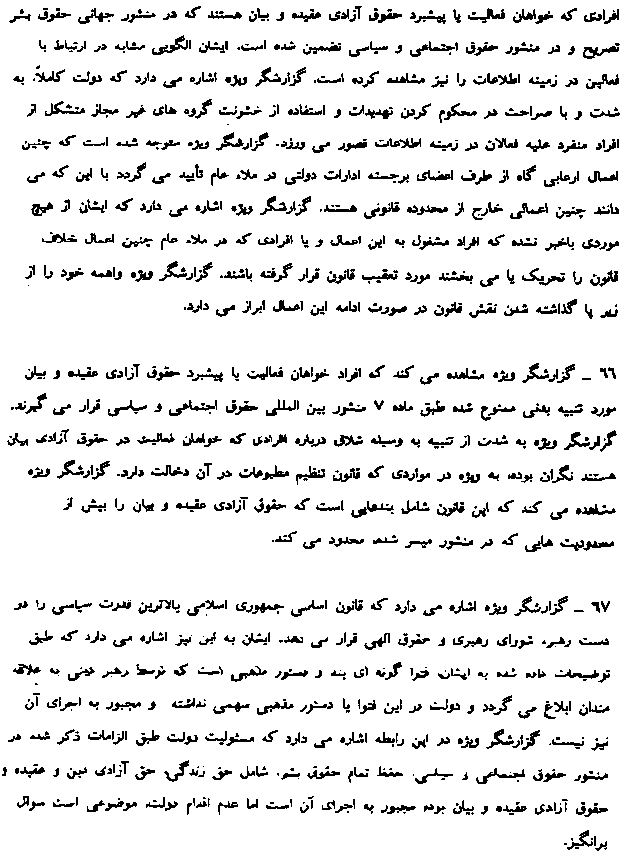 افرادی که خواهان فعالیت یا پیشبرد حقوق آزادی عقیده و بیان هستند که در منشور جهانی حقوق بشر
تصریح و در منشور حقوق اجتماعی و سیاسی تضمین شده است. ایشان الگویی مشابه در ارتباط با
فعالین در زمینه اطلاعات را نیز مشاهده کرده است. گزارشگر ویژه اشاره می دارد که دولت کاملاً، به
شدت و با صراحت در محکوم کردن تهدیدات و استفاده از خشونت گروه های غیر مجاز متشکل از
افراد منفرد علیه فعالان در زمینه اطلاعات قصور می ورزد. گزارشگر ویژه متوجه شده است که چنین
اعمال ارعابی گاه از طرف اعضای برجسته ادارات دولتی در ملاء عام تأیید می گردد با این که می
دانند چنین اعمالی خارج از محدوده قانونی هستند. گزارشگر ویژه اشاره می دارد که ایشان از هیچ
موردی باخبر نشده که افراد مشغول به این اعمال و یا افرادی که در ملاء عام چنین اعمال خلاف
قانون را تحریک یا می بخشند مورد تعقیب قانون قرار گرفته باشند. گزارشگر ویژه واهمه خود را از
زیر پا گذاشته شدن نقش قانون در صورت ادامه این اعمال ابراز می دارد.
٦٦ ـ گزارشگر ویژه مشاهده می کند که افراد خواهان فعالیت یا پیشبرد حقوق آزادی عقیده و بیان
مورد تنبیه بدنی ممنوع شده طبق ماده ٧ منشور بین المللی حقوق اجتماعی و سیاسی قرار می گیرند.
گزارشگر ویژه به شدت از تنبیه به وسیله شلاق درباره افرادی که خواهان فعالیت در حقوق آزادی بیان
هستند نگران بوده، به ویژه در مواردی که قانون تنظیم مطبوعات در آن دخالت دارد. گزارشگر ویژه
مشاهده می کند که این قانون شامل بندهایی است که حقوق آزادی عقیده و بیان را بیش از
محدودیت هایی که در منشور میسر شده، محدود می کند.
٦٧ ـ گزارشگر ویژه اشاره می دارد که قانون اساسی جمهوری اسلامی بالاترین قدرت سیاسی را در
دست رهبر، شورای رهبری و حقوق الهی قرار می دهد. ایشان به این نیز اشاره می دارد که طبق
توضیحات داده شده به ایشان، فتوا گونه ای پند و دستور مذهبی است که توسط رهبر دینی به علاقه
مندان ابلاغ می گردد و دولت در این فتوا یا دستور مذهبی سهمی نداشته و مجبور به اجرای آن
نیز نیست. گزارشگر ویژه در این رابطه اشاره می دارد که مسئولیت دولت طبق الزامات ذکر شده در
منشور حقوق اجتماعی و سیاسی، حفظ تمام حقوق بشر، شامل حق زندگی، حق آزادی دین و عقیده و
حقوق آزادی عقیده و بیان بوده مجبور به اجرای آن است اما عدم اقدام دولت، موضوعی است سوال
برانگیز.